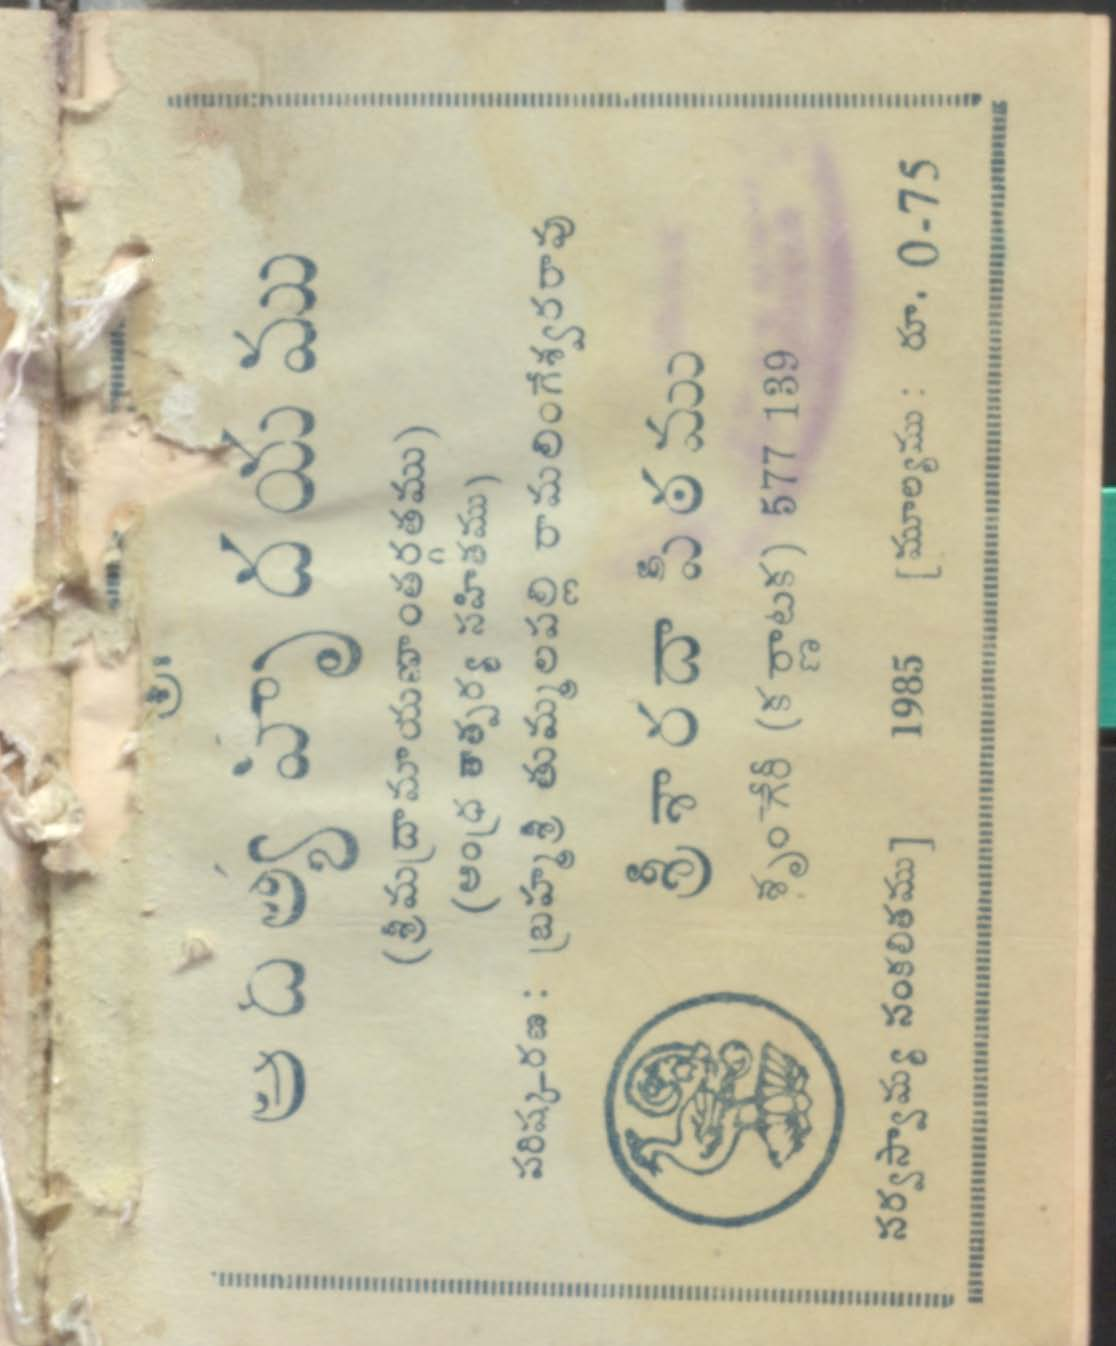 శ్రీః
ఆ ది త్య హృ ద య ము
(శ్రీమద్రామాయణాంతర్గతము)
(ఆంధ్ర తాత్పర్య సహితము)
పరిష్కరణ : బ్రహ్మశ్రీ తుమ్మలపల్లి రామలింగేశ్వరరావు
శ్రీ శా ర దా పీ ఠ ము
శృంగేరి (కర్ణాటక) 577 139
సర్వస్వామ్య సంకలితము] 1985 [మూల్యము : రూ. 0-75